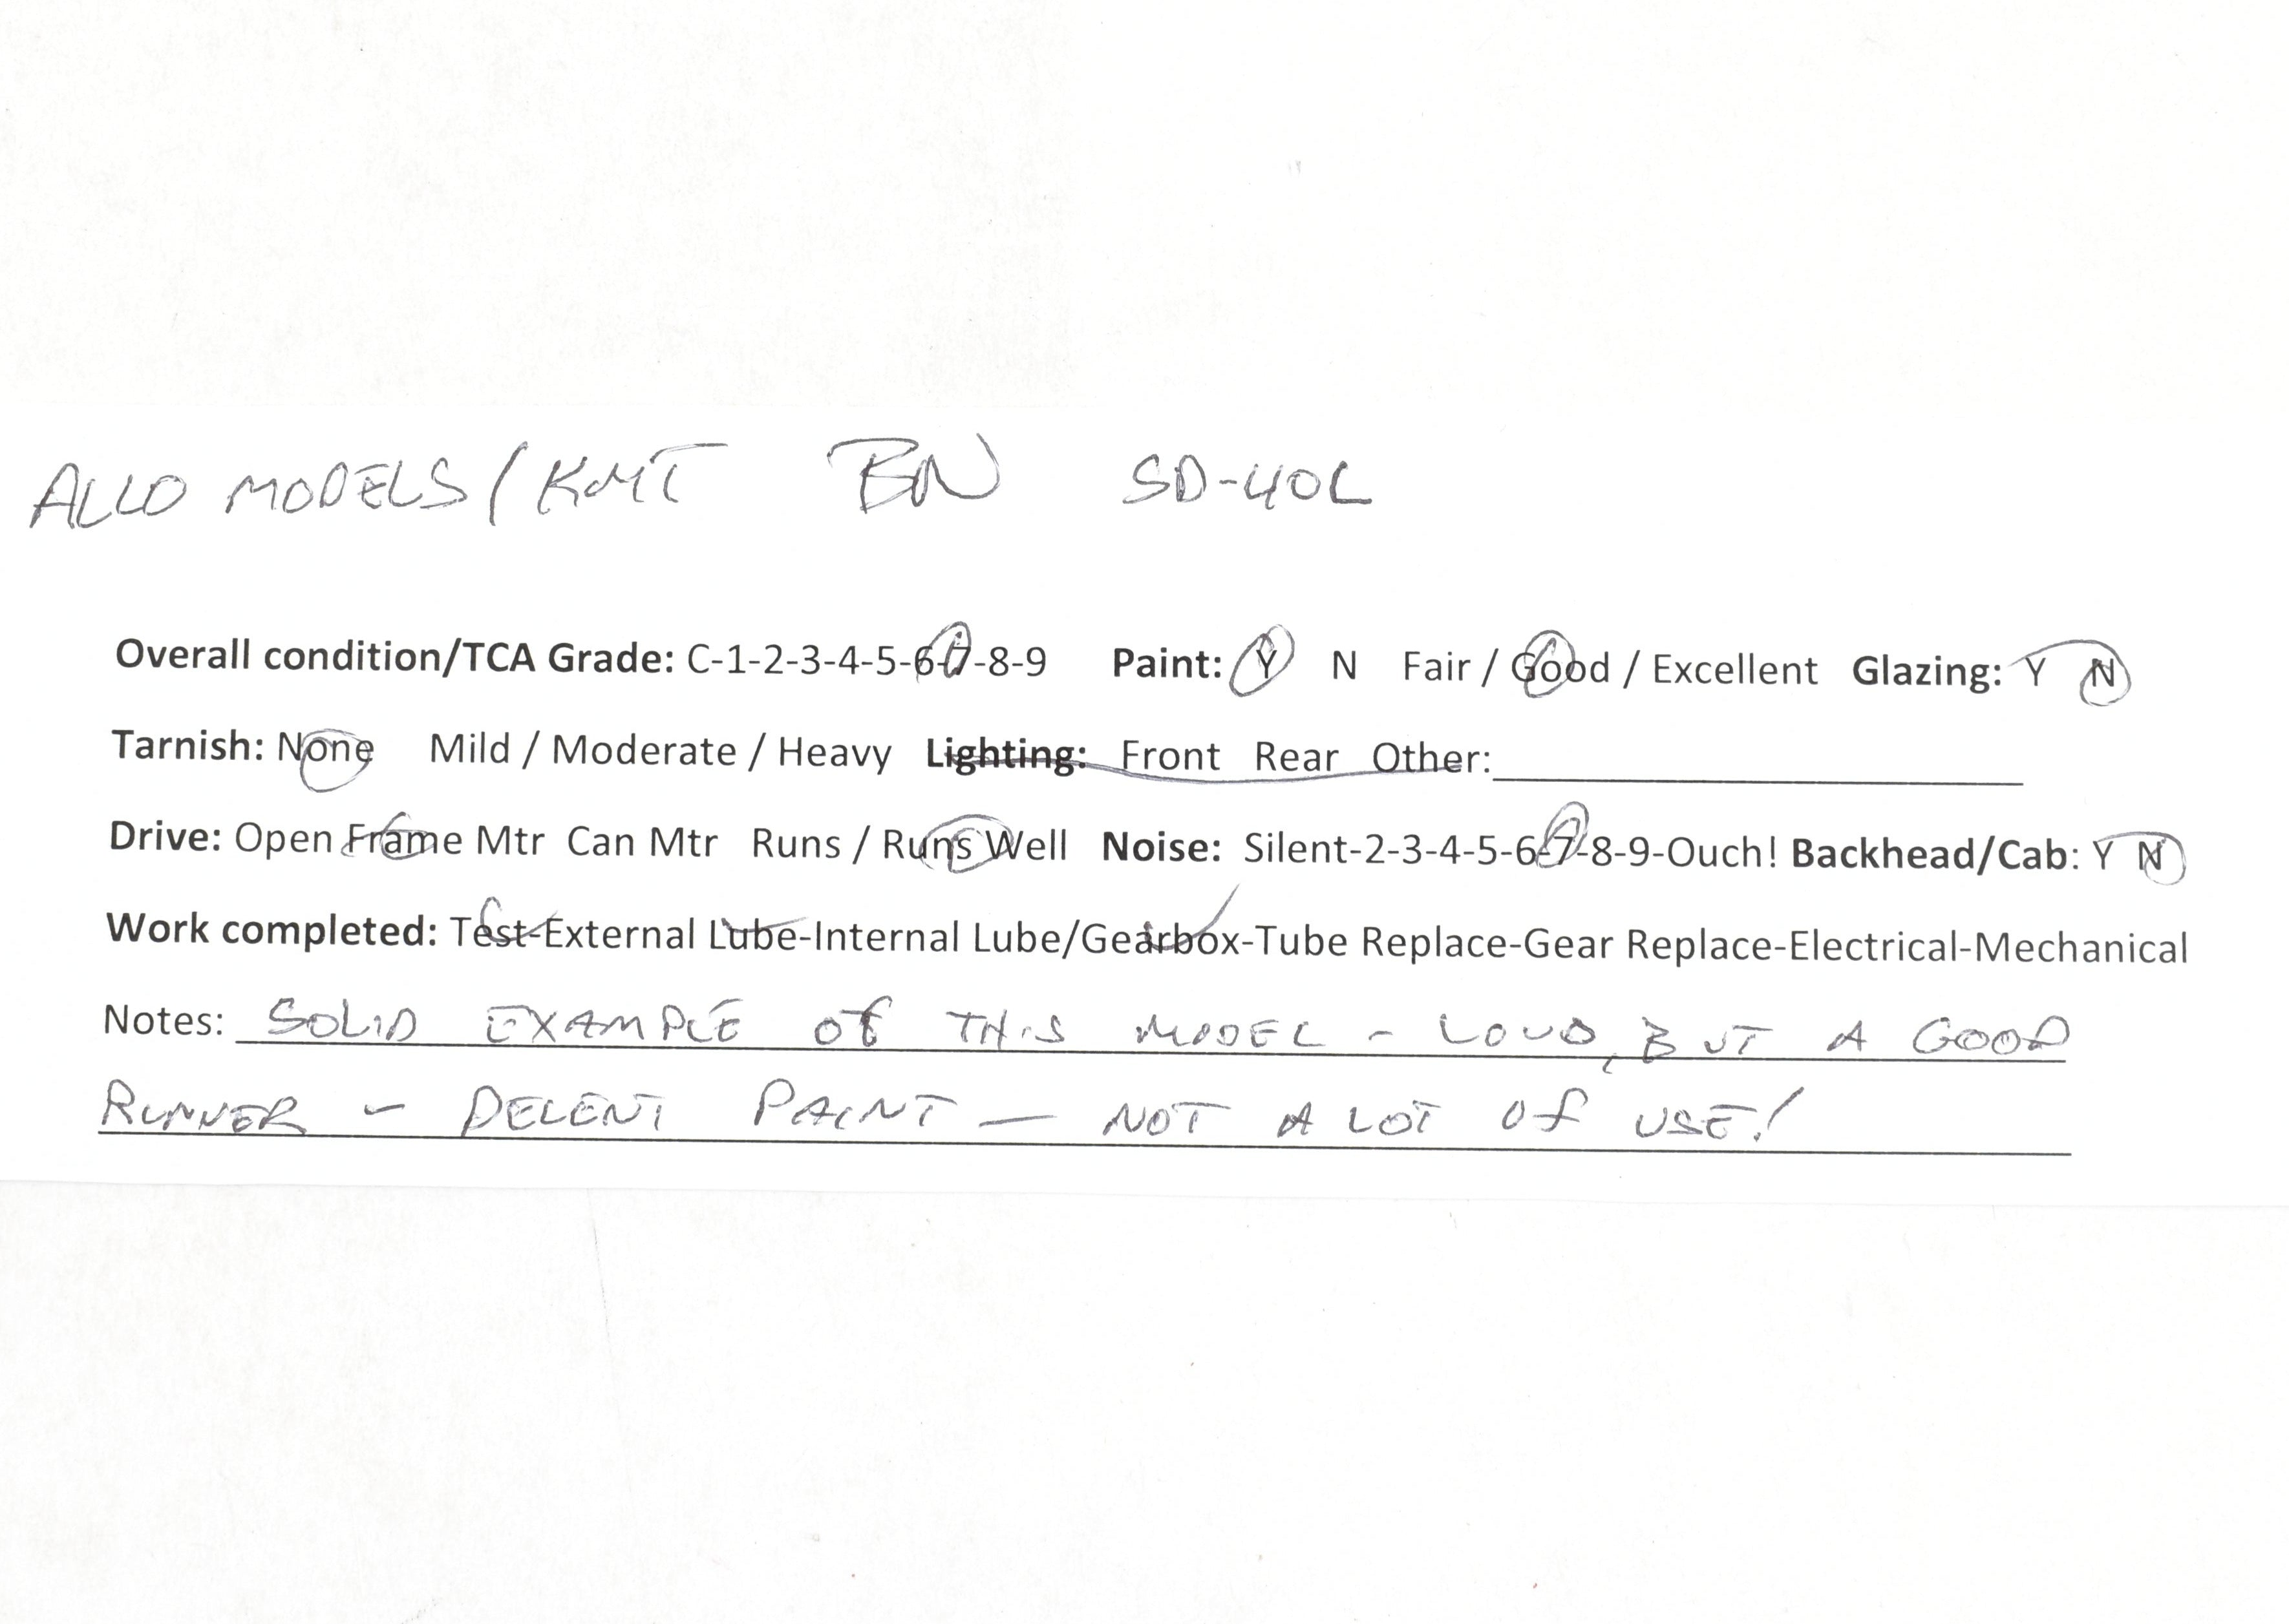 ALLO MODELS/KMT BN SD-40L
Overall condition/TCA Grade: C-1-2-3-4-5-6-7-8-9 Paint: Y N Fair / Good / Excellent Glazing: Y N
Tarnish: None Mild / Moderate / Heavy Lighting: Front Rear Other:
Drive: Open Frame Mtr Can Mtr Runs / Runs Well Noise: Silent-2-3-4-5-6-7-8-9-Ouch! Backhead/Cab: Y N
Work completed: Test-External Lube-Internal Lube/Gearbox-Tube Replace-Gear Replace-Electrical-Mechanical
Notes: SOLID EXAMPLE OF THIS MODEL - LOUD, BUT A GOOD
RUNNER - DECENT PAINT — NOT A LOT OF USE!